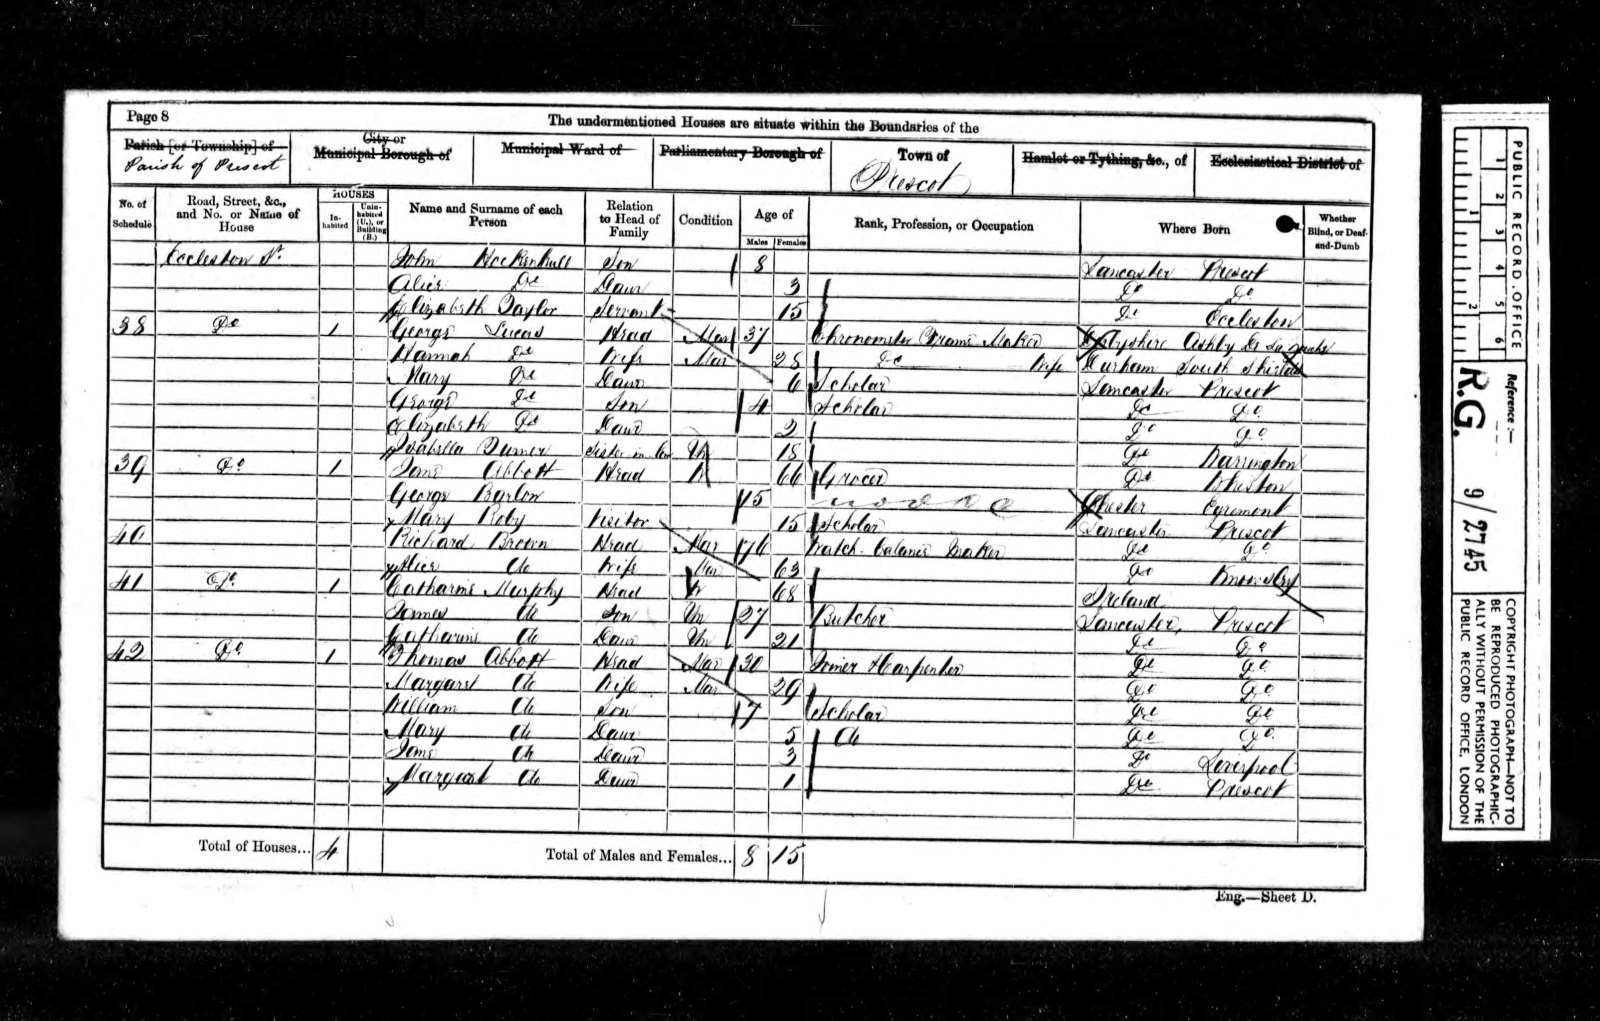 Page 8
The undermentioned Houses are situate within the Boundaries of the
Parish [or Township] of
Parish of Prescot
City or
Municipal Borough of
Municipal Ward of
Parliamentary Borough of
Town of
Prescot
Hamlet or Tything, &c., of
Ecclesiastical District of
No. of Schedule
Road, Street, &c., and No. or Name of House
HOUSES
In-habited
Unin-habited (U.), or Building (B.)
Name and Surname of each Person
Relation to Head of Family
Condition
Age of
Males
Females
Rank, Profession, or Occupation
Where Born
Whether Blind, or Deaf-and-Dumb
Eccleston St. John Son 8 Lancaster Prescot
Alice Do Daur 3 Do Do
Elizabeth Taylor Servant 15 Do Eccleston
38 Do 1 George Lucas Head Mar 37 Chronometer Frame Maker Derbyshire Ashby De La
Hannah Do Wife Mar 28 Do Wife Durham South Shields
Mary Do Daur 6 Scholar Lancaster Prescot
George Do Son 4 Scholar Do Do
Elizabeth Do Daur 2 Do Do
Isabella Turner Sister in law Un 18 Do Warrington
39 Do 1 Jane Abbott Head W 66 Grocer Do Whiston
George Barlow 15 Chester Egremont
Mary Roby Visitor 15 Scholar Lancaster Prescot
40 Richard Brown Head Mar 76 Watch balance Maker Do Do
Alice do Wife Mar 63 Do Knowsley
41 Do 1 Catharine Murphy Head W 68 Ireland
James do Son Un 27 Butcher Lancaster, Prescot
Catharine do Daur Un 21 Do Do
42 Do 1 Thomas Abbott Head Mar 30 Joiner & Carpenter Do Do
Margaret do Wife Mar 29 Do Do
William do Son 7 Scholar Do Do
Mary do Daur 5 do Do Do
Jane do Daur 3 Do Liverpool
Margaret do Daur 1 Do Prescot
Total of Houses... 4
Total of Males and Females... 8 15
Eng.—Sheet D.
PUBLIC RECORD OFFICE
1 2 3 4 5 6
1 2
Reference:—
R.G. 9/2745
COPYRIGHT PHOTOGRAPH—NOT TO
BE REPRODUCED PHOTOGRAPHIC-
ALLY WITHOUT PERMISSION OF THE
PUBLIC RECORD OFFICE, LONDON